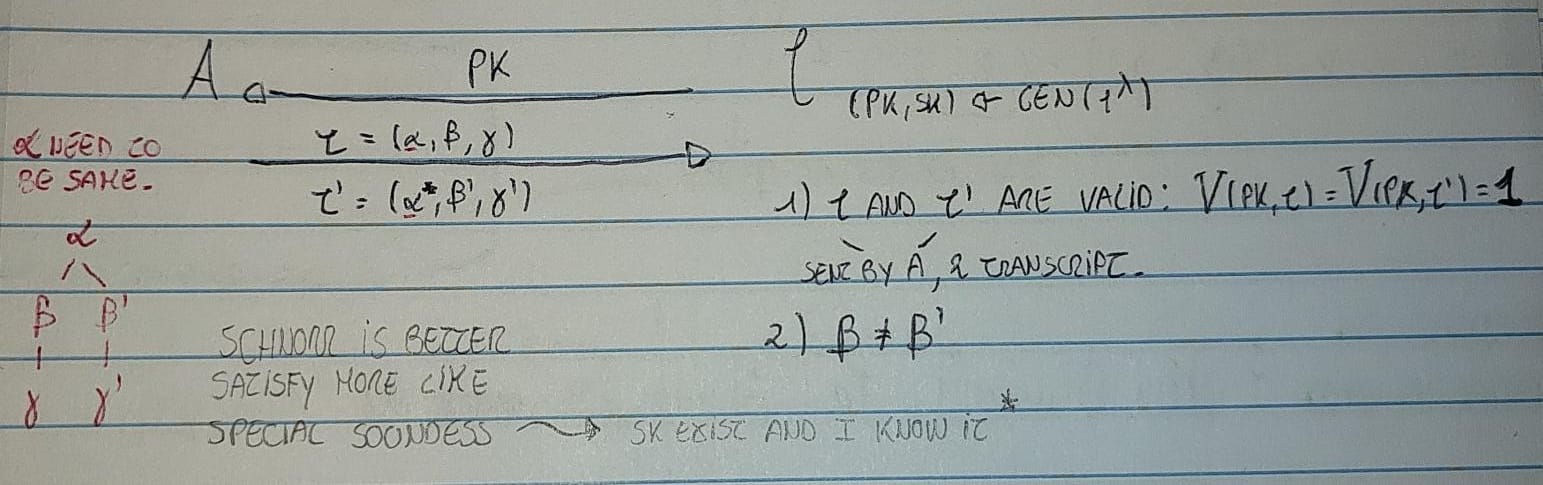 A PK C
(PK, SK) ← GEN(1^λ)
α NEED TO
BE SAME.
τ = (α, β, γ)
τ' = (α*, β', γ')
1) τ AND τ' ARE VALID: V(PK, τ) = V(PK, τ') = 1
SENT BY A, 2 TRANSCRIPT.
α
β β'
γ γ'
2) β ≠ β'
SCHNORR IS BETTER
SATISFY MORE LIKE
SPECIAL SOONDESS ⇝ SK EXIST AND I KNOW IT *